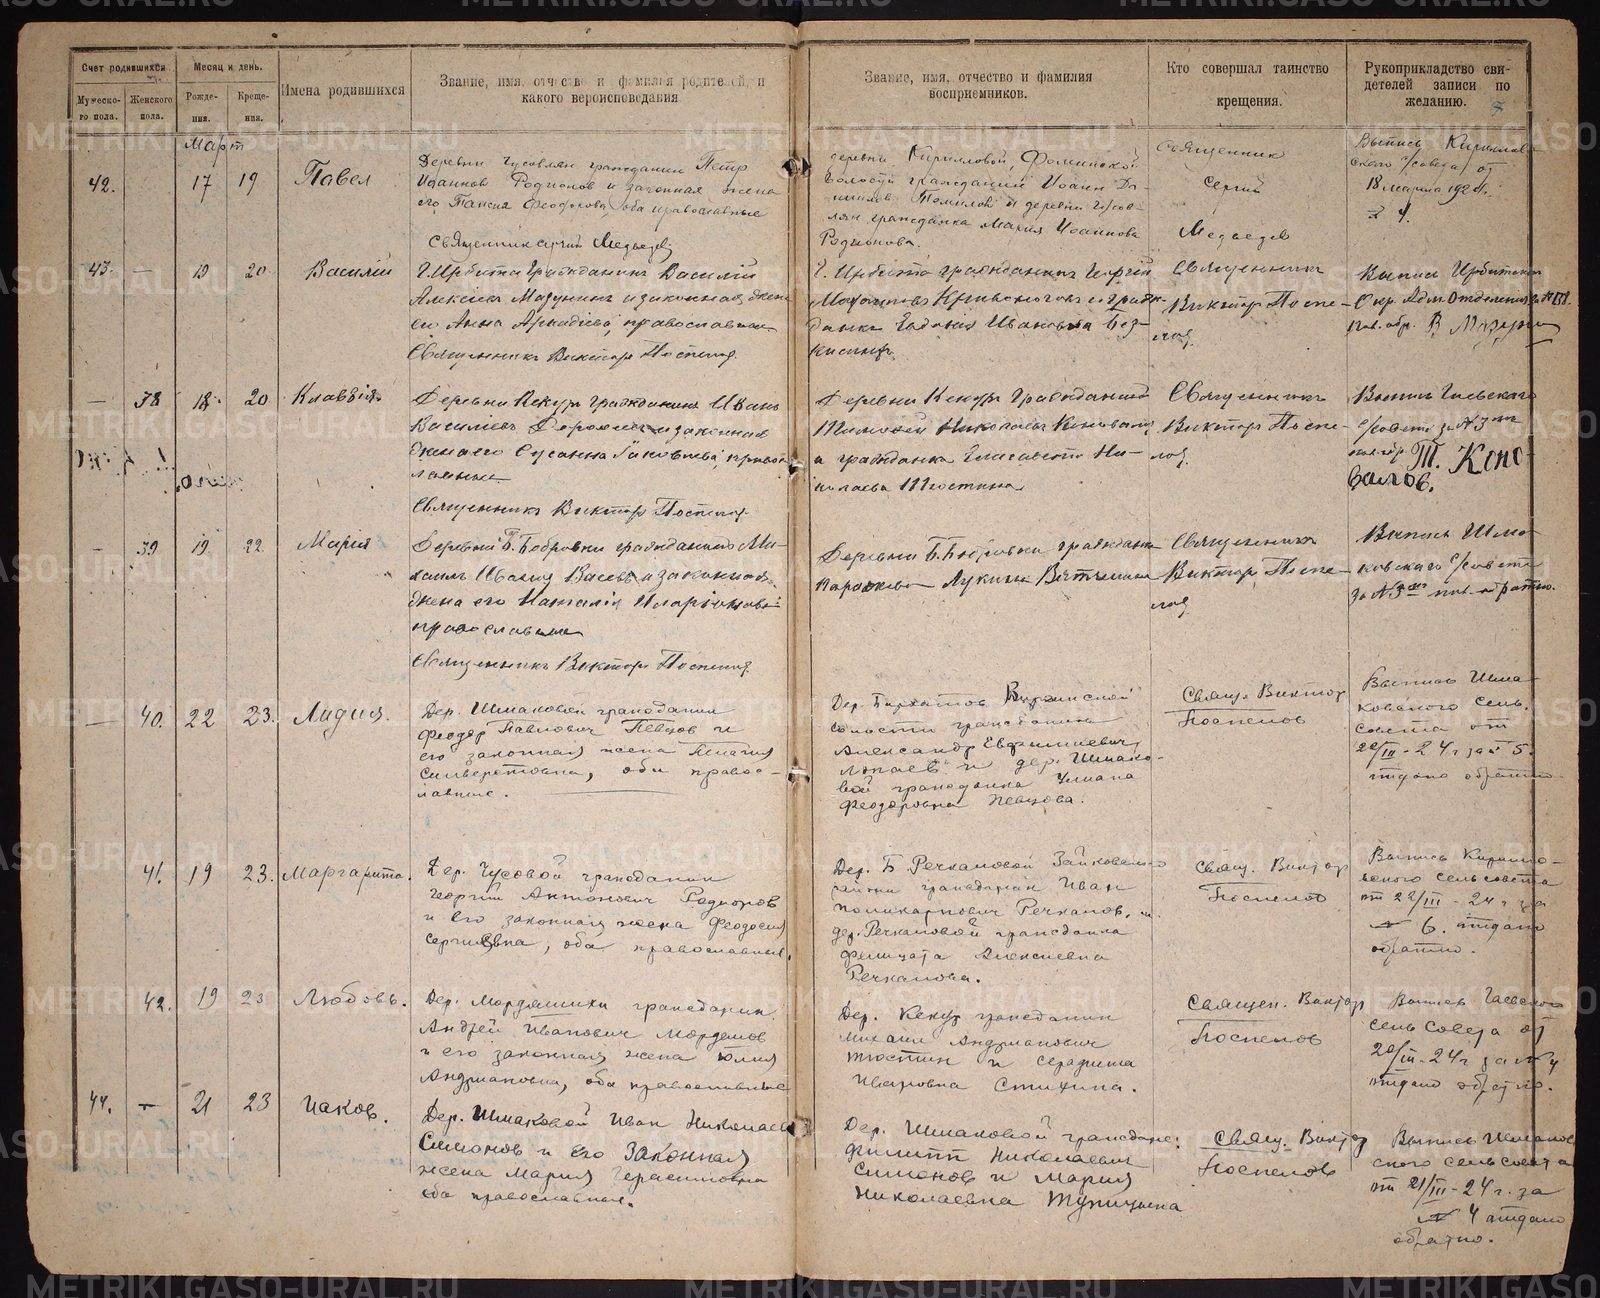 METRIKI.GASO-URAL.RU
Счет родившихся
Месяц и день.
Имена родившихся
Звание, имя, отчество и фамилия родителей, и
какого вероисповедания
Мужеско-
го пола.
Женского
пола.
Рожде-
ния.
Креще-
ния.
Звание, имя, отчество и фамилия
восприемников.
Кто совершал таинство
крещения.
Рукоприкладство сви-
детелей записи по
желанию.
Март
42.
17
19
Павел
Деревни Чусовлян гражданин Петр
Иоаннов Родионов и законная жена
его Таисия Феодорова, оба православные
Священник Сергий Медведев
деревни Кирилловой,
волости гражданин Иоанн Да-
нилов Томилов и деревни Чусов-
лян гражданка Мария Иоаннова
Родионова.
Священник
Сергий
Медведев
Выпись Кириллов-
ского с/совета от
18 марта 1924 г.
№ 4.
43.
—
19
20
Василий
Г. Ирбита гражданин Василий
Алексиев Мазунин и законная жена
его Анна Аркадиева, православные
Священник Виктор Поспелов.
Г. Ирбита гражданин
Кривоногов и граж-
данка Ивановна Без-
Священник
Виктор Поспе-
лов.
Выпись Ирбитского
Окр. Адм. Отделения за №
—
38
18
20
Клавдия
Деревни Кекур гражданин Иван
Василиев и законная
жена его Сусанна Яковлева, право-
славные
Священник Виктор Поспелов.
Деревни Кекур гражданин
Тимофей Николаев Коновалов
и гражданка Елисавета Ни-
колаева Тюстина
Священник
Виктор Поспе-
лов.
Выпись Гаевского
с/совета за № 3
Т. Коно-
валов.
—
39
19
22
Мария
Деревни Б. Бобровки гражданин Ми-
хаил Иванов Васев и законная
жена его Наталия Иларионова
православные
Священник Виктор Поспелов.
Деревни Б. Бобровки гражданка
Параскева Лукина Вятчина
Священник
Виктор Поспе-
лов.
Выпись Шма-
ковского с/совета
за № 3 пол. обратно.
—
40.
22
23.
Лидия.
Дер. Шмаковой гражданин
Феодор Павлович Певцов и
его законная жена Пелагия
Сильвестровна, обы правос-
лавные.
Дер. Бархатов
волости гражданин
Александр Евфимиевич
Лопаев и дер. Шмако-
вой гражданка
Феодоровна Певцова.
Свящ. Виктор
Поспелов
Выпись Шма-
ковского Сель.
совета от
22/III - 24 г за № 5.
отдано обратно
41.
19
23.
Маргарита.
Дер. Чусовой гражданин
Георгий Антонович Родионов
и его законная жена Феодосия
Сергиевна, оба православные.
Дер. Б Речкаловой Зайковского
района гражданин Иван
Поликарпович Речкалов, и
дер. Речкаловой гражданка
Фелицата Алексиевна
Речкалова.
Свящ. Виктор
Поспелов
Выпись Кирилло-
вского сельсовета
от 22/III - 24 г за
№ 6. отдано
обратно.
42.
19
23
Любовь.
Дер. Мордяшихи гражданин
Андрей Иванович Мордяшов
и его законная жена Юлия
Андриановна, оба православные
Дер. Кекур гражданин
Михаил Андрианович
Тюстин и Серафима
Ивановна Стихина.
Священ. Виктор
Поспелов
Выпись Гаевского
сельсовета от
20/III - 24 г за № 4
отдано обратно.
44.
—
21
23
Иаков.
Дер. Шмаковой Иван Николаев
Симонов и его законная
жена Мария Герасимовна
оба православные.
Дер. Шмаковой граждане:
Филипп Николаевич
Симонов и Мария
Николаевна Тупицына
Свящ. Виктор
Поспелов
Выпись Шмаков-
ского сельсовета
от 21/III - 24 г. за
№ 4 отдано
обратно.